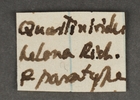 Quartinioides
helena Rich.
♀ paratype